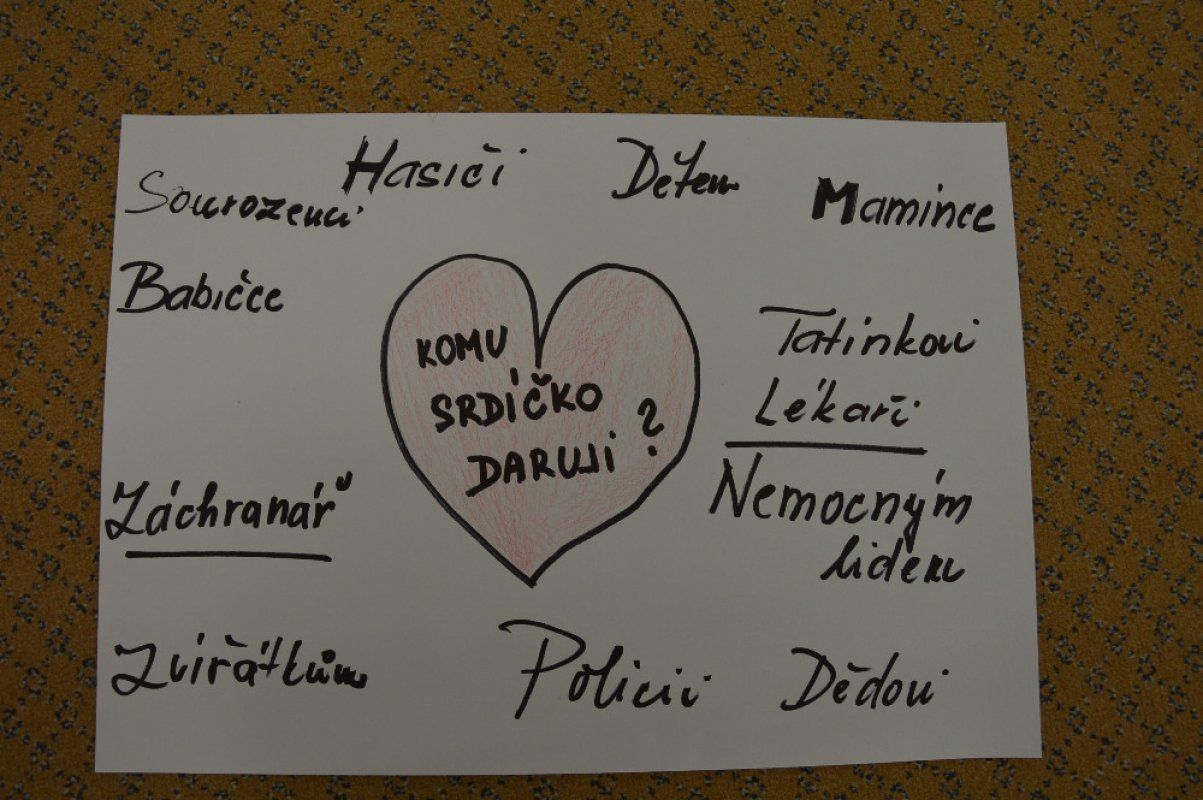 Hasiči
Dětem
Mamince
Sourozenci
Babičce
KOMU
SRDÍČKO
DARUJI ?
Tatínkovi
Lékaři
Záchranář
Nemocným
lidem
Zvířátkům
Policii
Dědovi